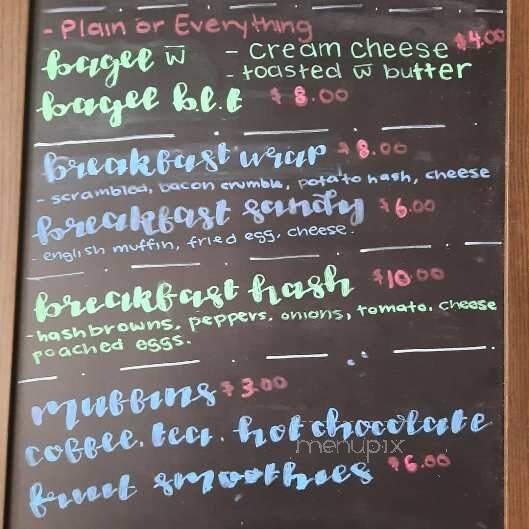 - Plain or Everything
bagel w̅ - cream cheese $4.00
- toasted w̅ butter
bagel b.l.t $8.00
breakfast wrap $8.00
- scrambled, bacon crumble, potato hash, cheese
breakfast sandy $6.00
- english muffin, fried egg, cheese.
breakfast hash $10.00
- hashbrowns, peppers, onions, tomato, cheese
poached eggs.
muffins $3.00
coffee, tea, hot chocolate
menupix
fruit smoothies $6.00